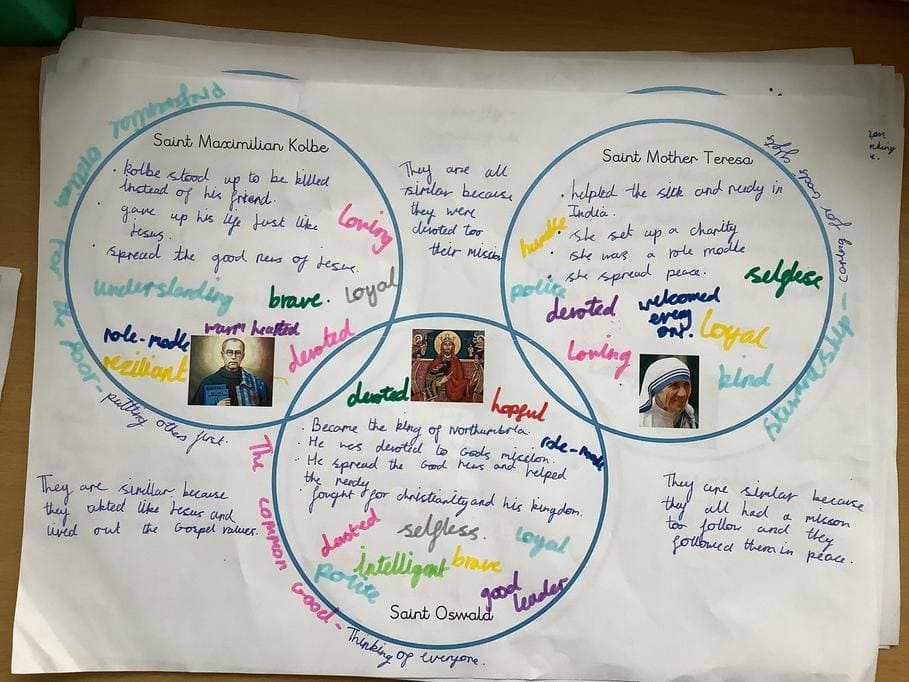 Saint Maximilian Kolbe
• Kolbe stood up to be killed
instead of his friend.
• gave up his life just like
Jesus.
• spread the good news of Jesus.
loving
understanding
brave.
loyal
role-modle
warm hearted
devoted
reziliant
preferential option for the poor-
putting othes first.
They are all
similar because
they were
devoted too
their mission
Saint Mother Teresa
• helpled the sick and needy in
India.
• she set up a charity
• she was a role modle
• she spread peace.
humble
polite
selfless
devoted
welcomed
every
one.
Loyal
Loving
kind
stewardship-
caring for Gods gifts
devoted
hopful
• Became the king of Northumbria.
• He was devoted to Gods mission.
role-modle
• He spread the Good News and helped
the needy
• fought for christianity and his kingdom.
devoted
selfless.
loyal
intelligent
brave
polite
good
leader
Saint Oswald
The common Good-
Thinking of everyone.
They are similar because
they akted like Jesus and
lived out the Gospel values.
They are similar because
they all had a misson
too follow and they
followed them in peace.